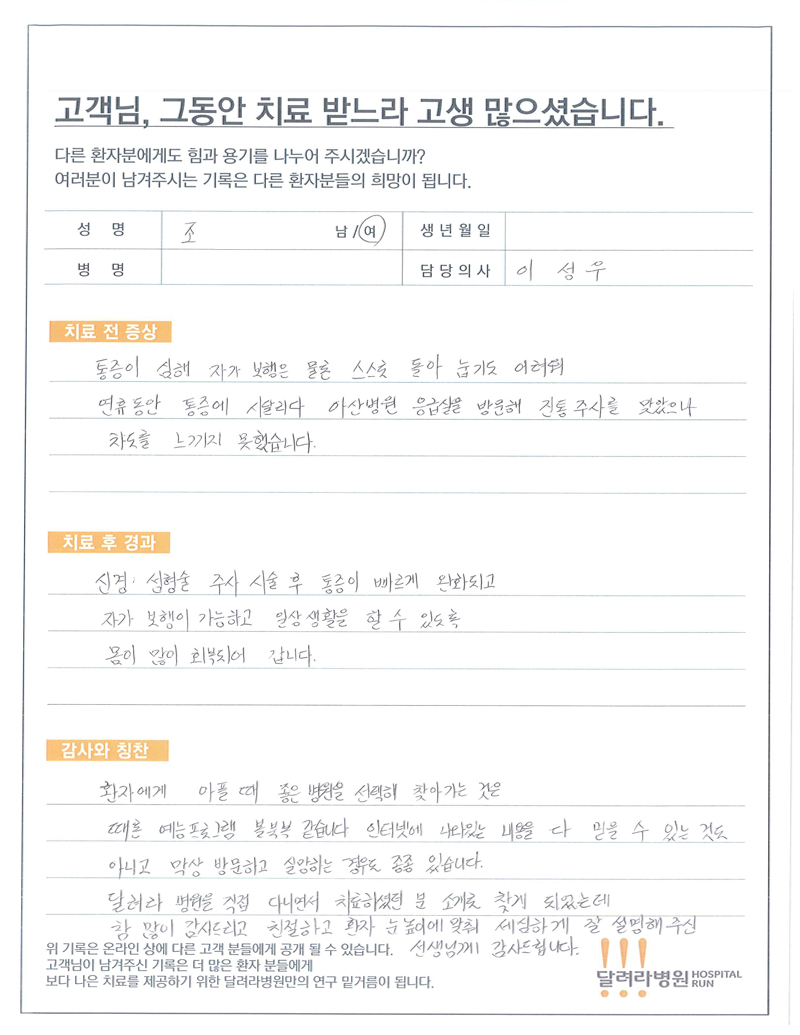 고객님, 그동안 치료 받느라 고생 많으셨습니다.
다른 환자분에게도 힘과 용기를 나누어 주시겠습니까?
여러분이 남겨주시는 기록은 다른 환자분들의 희망이 됩니다.
성 명 조 남/여 생년월일
병 명 담당의사 이 성우
치료 전 증상
통증이 심해 자가 보행은 물론 스스로 돌아 눕기도 어려워
연휴동안 통증에 시달리다 아산병원 응급실을 방문해 진통주사를 맞았으나
차도를 느끼지 못했습니다.
치료 후 경과
신경·성형술 주사 시술 후 통증이 빠르게 완화되고
자가 보행이 가능하고 일상생활을 할 수 있도록
몸이 많이 회복되어 갑니다.
감사와 칭찬
환자에게 아플 때 좋은 병원을 선택해 찾아가는 것은
때론 예능프로그램 복불복 같습니다 인터넷에 나와있는 내용을 다 믿을 수 있는 것도
아니고 막상 방문하고 실망하는 경우도 종종 있습니다.
달려라 병원을 직접 다니면서 치료하셨던 분 소개로 찾게 되었는데
참 많이 감사드리고 친절하고 환자 눈높이에 맞춰 세심하게 잘 설명해주신
선생님께 감사드립니다.
위 기록은 온라인 상에 다른 고객 분들에게 공개 될 수 있습니다.
고객님이 남겨주신 기록은 더 많은 환자 분들에게
보다 나은 치료를 제공하기 위한 달려라병원만의 연구 밑거름이 됩니다.
달려라병원 HOSPITAL RUN